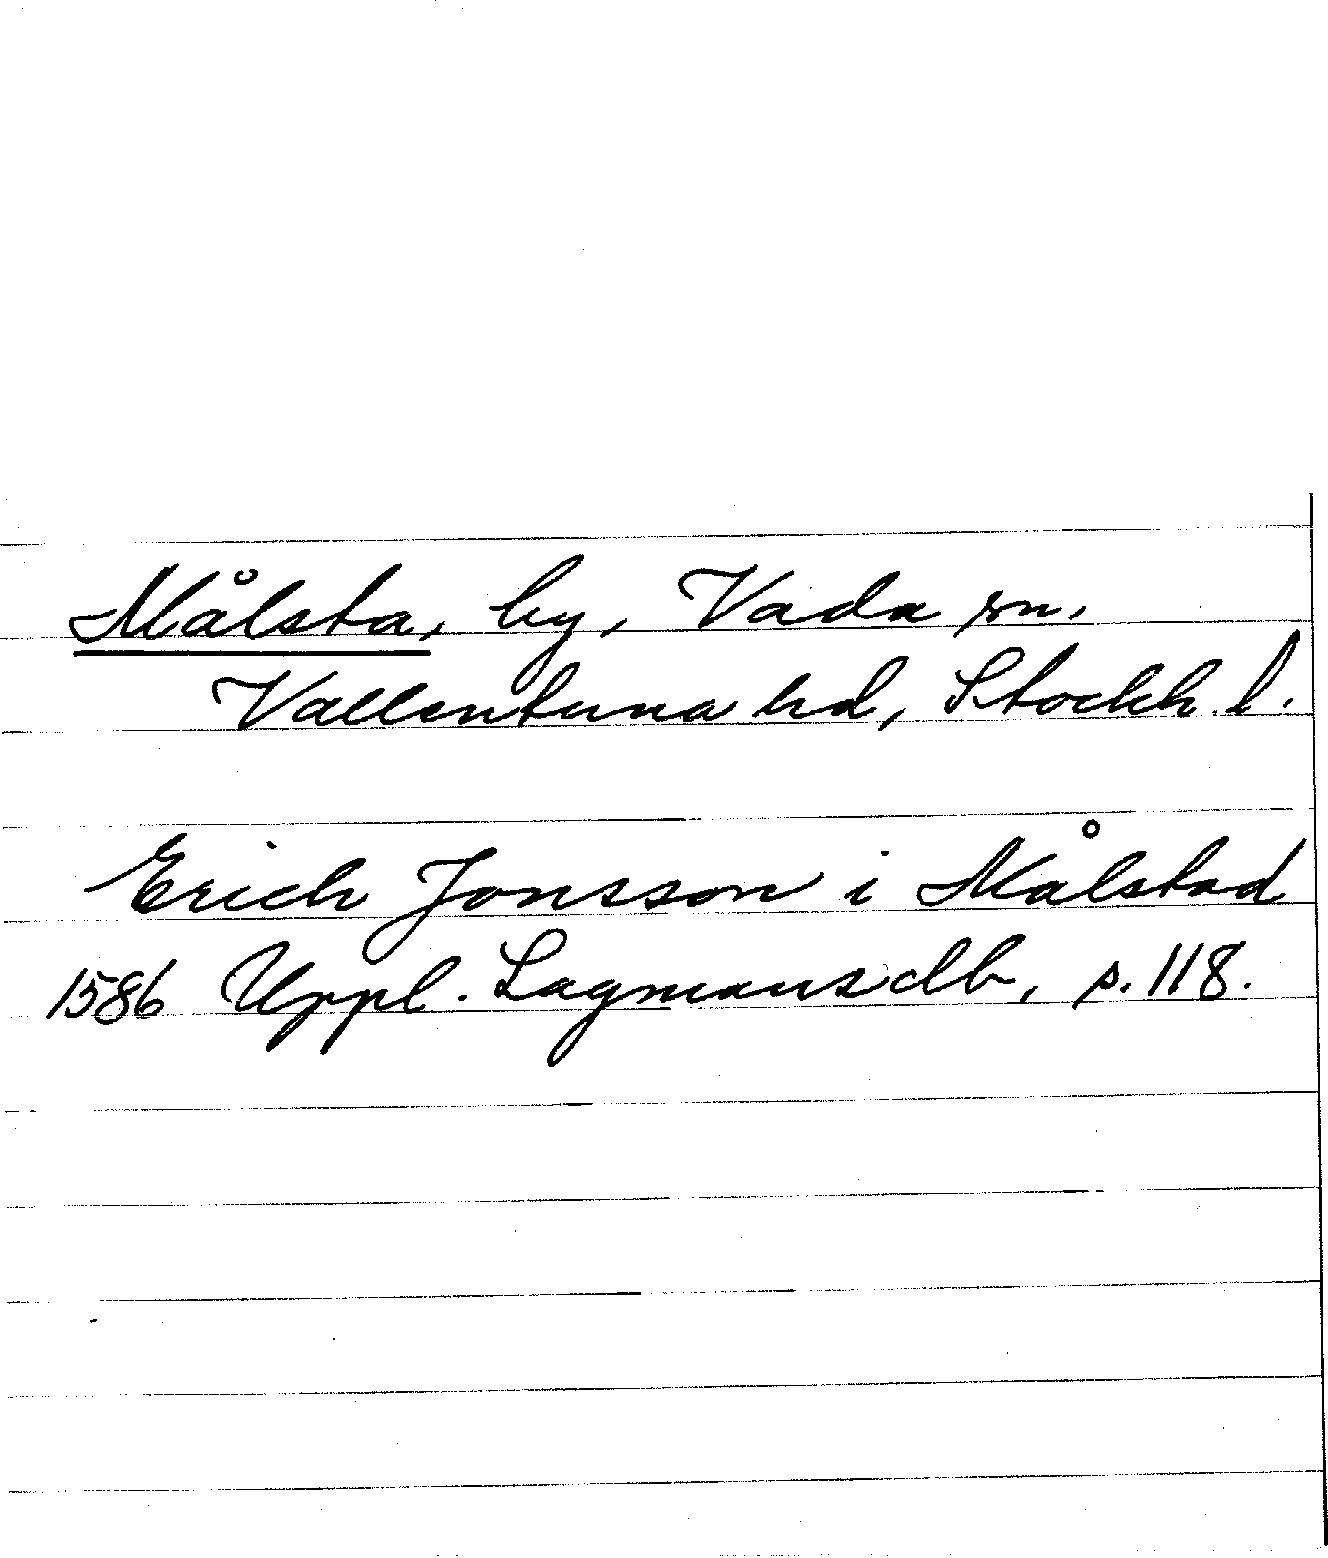 Målsta, by, Vada sn.
Vallentuna hd, Stockh. l.
Erich Jonsson i Målstad
1586 Uppl. Lagmansdb, s. 118.